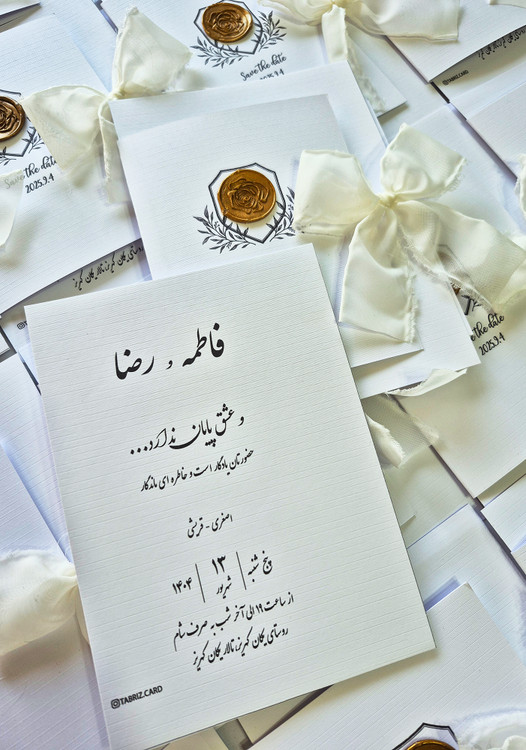 Save the date
2025.9.4
Save the date
2025.9.4
Save the date
2025.9.4
فاطمه و رضا
و عشق پایان ندارد...
حضورتان یادگار است و خاطره ای ماندگار
اصغری - قرشی
پنج شنبه | ۱۳ شهریور | ۱۴۰۴
از ساعت ۱۹ الی آخر شب به صرف شام
روستای یکان کهریز، تالار یکان کهریز
@TABRIZ.CARD